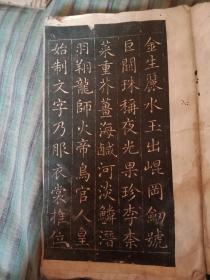 金生麗水玉出崐岡釼號
巨闕珠稱夜光果珍李柰
菜重芥薑海鹹河淡鱗潛
羽翔龍師火帝鳥官人皇
始制文字乃服衣裳推位